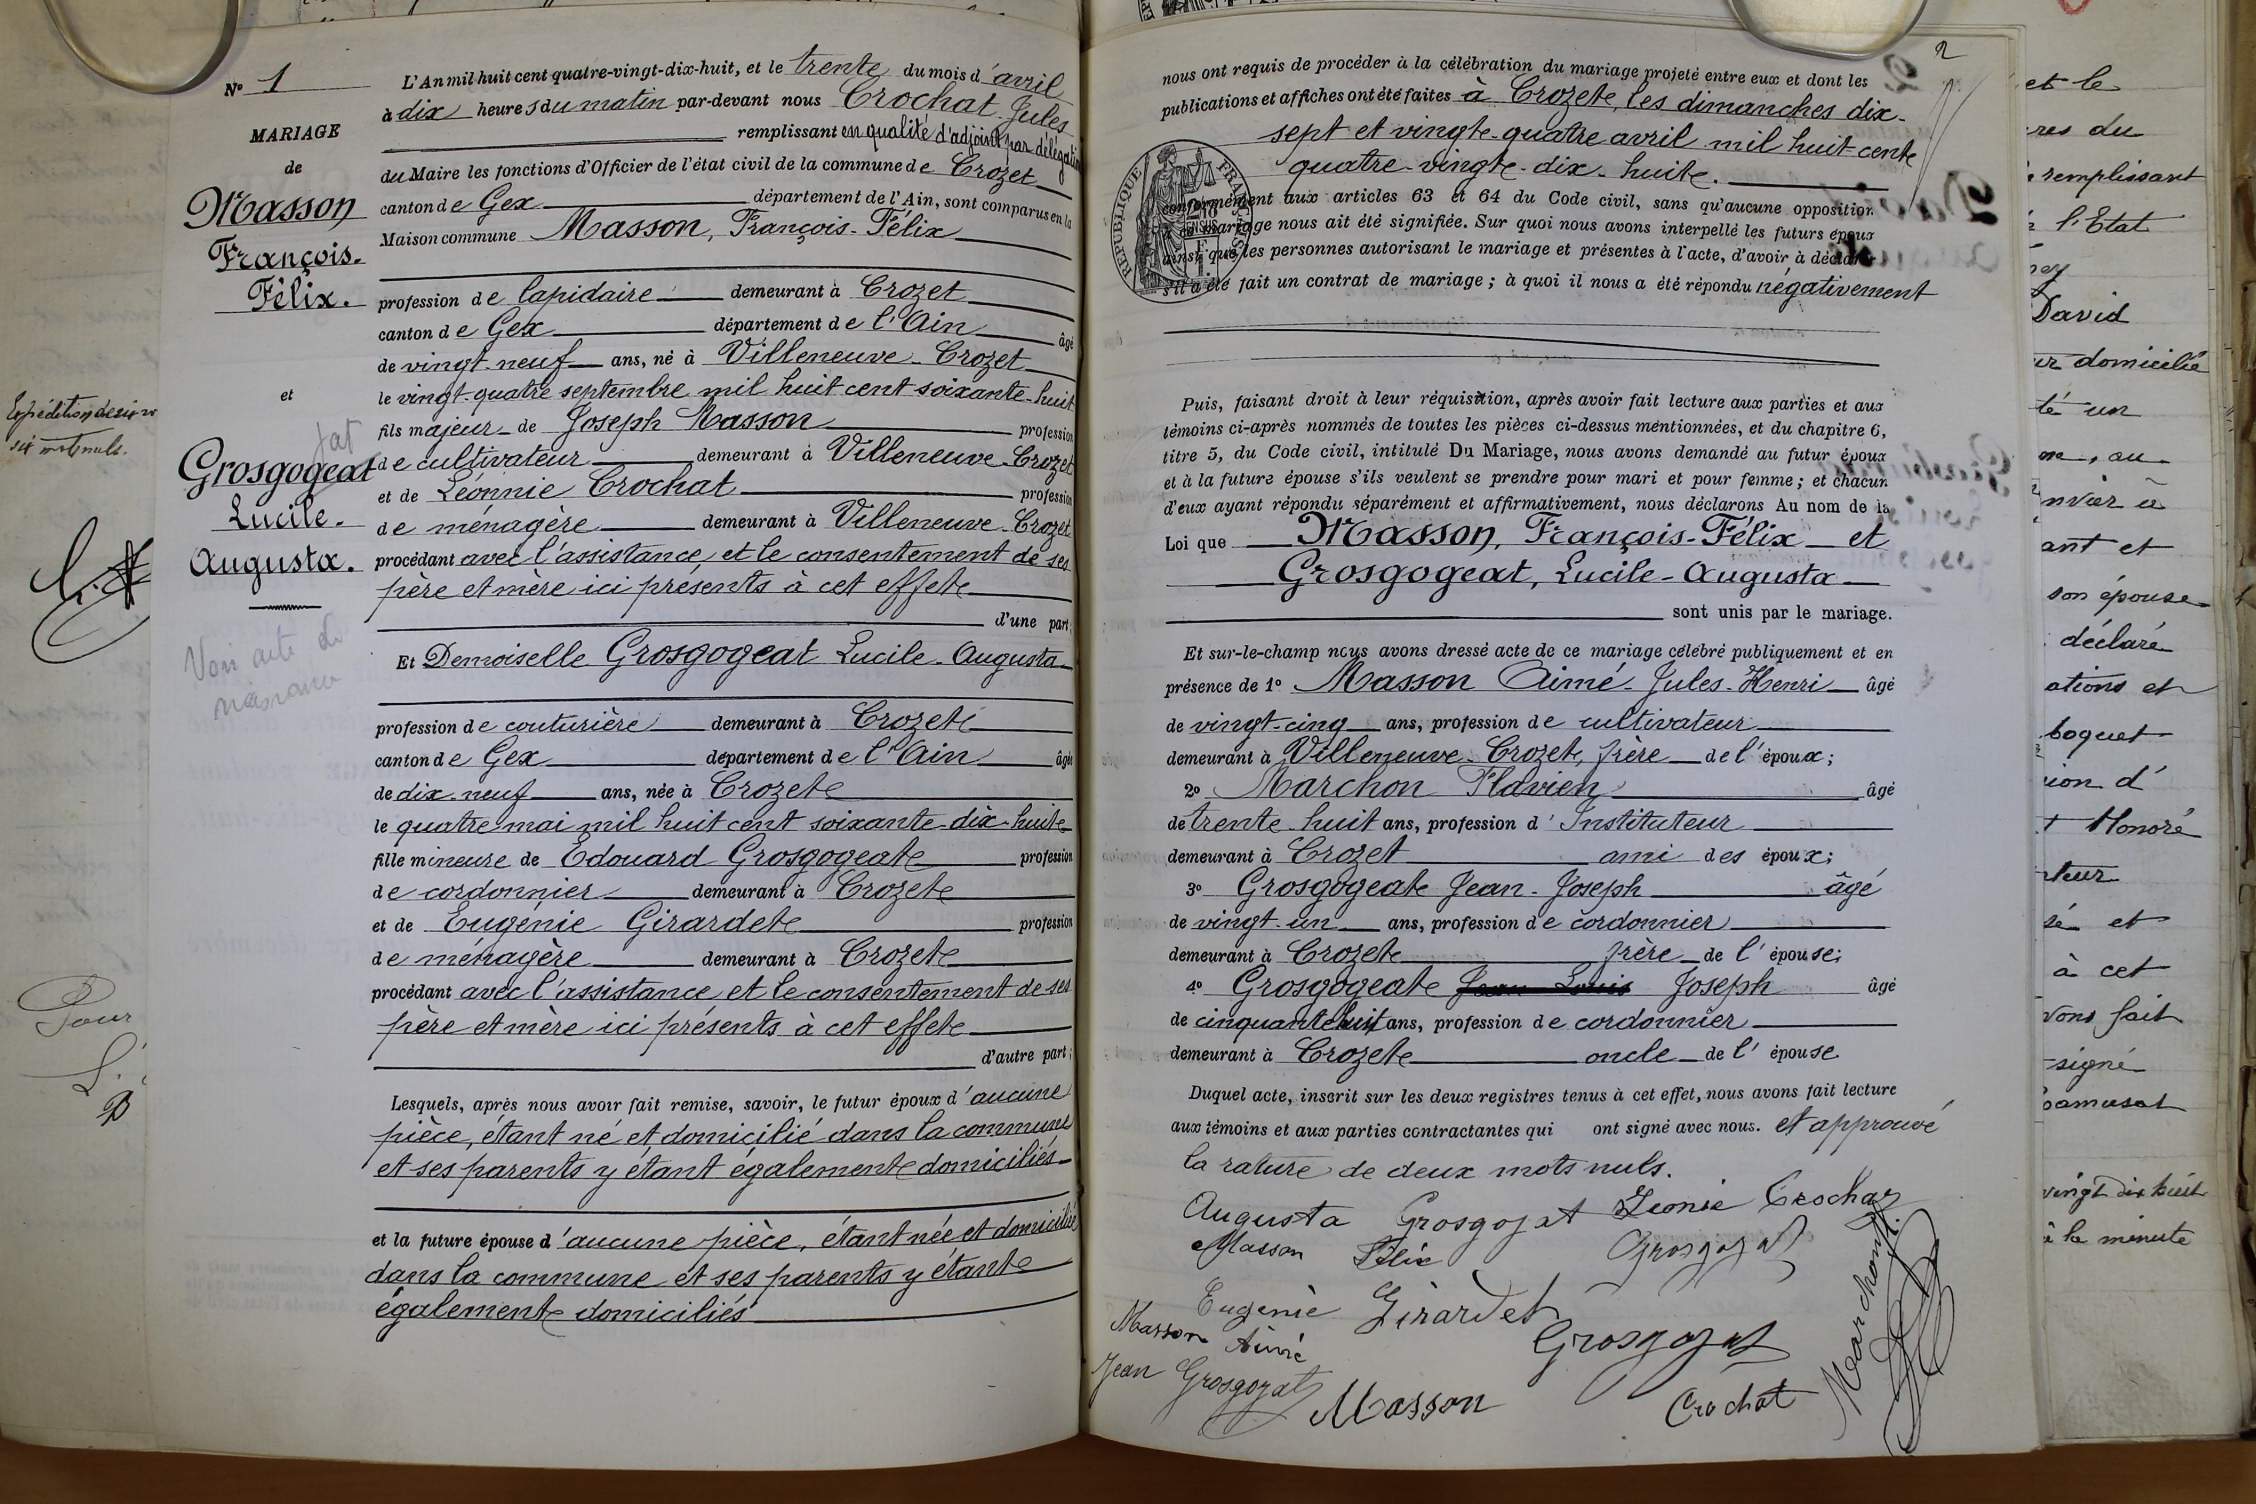 N° 1
MARIAGE
de
Masson
François-
Félix.
et
Grosgogeat
jat
Lucile-
Augusta.
Voir acte de
L'An mil huit cent quatre-vingt-dix-huit, et le trente du mois d'avril
à dix heures du matin par-devant nous Crochat Jules
remplissant en qualité d'adjoint par délégation
du Maire les fonctions d'Officier de l'état civil de la commune de Crozet
canton de Gex département de l'Ain, sont comparus en la
Maison commune Masson, François-Félix
profession de lapidaire demeurant à Crozet
canton de Gex département de l'Ain âgé
de vingt-neuf ans, né à Villeneuve-Crozet
le vingt-quatre septembre mil huit cent soixante-huit
fils majeur de Joseph Masson profession
de cultivateur demeurant à Villeneuve-Crozet
et de Léonnie Crochat profession
de ménagère demeurant à Villeneuve-Crozet
procédant avec l'assistance et le consentement de ses
père et mère ici présents à cet effet
d'une part;
Et Demoiselle Grosgogeat Lucile-Augusta
profession de couturière demeurant à Crozet
canton de Gex département de l'Ain âgée
de dix-neuf ans, née à Crozet
le quatre mai mil huit cent soixante-dix-huit
fille mineure de Edouard Grosgogeat profession
de cordonnier demeurant à Crozet
et de Eugénie Girardet profession
de ménagère demeurant à Crozet
procédant avec l'assistance et le consentement de ses
père et mère ici présents à cet effet
d'autre part;
Lesquels, après nous avoir fait remise, savoir, le futur époux d'aucune
pièce, étant né et domicilié dans la commune
et ses parents y étant également domiciliés
et la future épouse d'aucune pièce, étant née et domiciliée
dans la commune et ses parents y étant
également domiciliés
2
nous ont requis de procéder à la célébration du mariage projeté entre eux et dont les
publications et affiches ont été faites à Crozet, les dimanches dix-
sept et vingt-quatre avril mil huit cent
quatre-vingt-dix-huit.
RÉPUBLIQUE FRANÇAISE
conformément aux articles 63 et 64 du Code civil, sans qu'aucune opposition
à ce mariage nous ait été signifiée. Sur quoi nous avons interpellé les futurs époux
ainsi que les personnes autorisant le mariage et présentes à l'acte, d'avoir à déclarer
s'il a été fait un contrat de mariage; à quoi il nous a été répondu négativement
Puis, faisant droit à leur réquisition, après avoir fait lecture aux parties et aux
témoins ci-après nommés de toutes les pièces ci-dessus mentionnées, et du chapitre 6,
titre 5, du Code civil, intitulé Du Mariage, nous avons demandé au futur époux
et à la future épouse s'ils veulent se prendre pour mari et pour femme; et chacun
d'eux ayant répondu séparément et affirmativement, nous déclarons Au nom de la
Loi que Masson, François-Félix et
Grosgogeat, Lucile-Augusta
sont unis par le mariage.
Et sur-le-champ nous avons dressé acte de ce mariage célébré publiquement et en
présence de 1° Masson Aimé-Jules-Henri âgé
de vingt-cinq ans, profession de cultivateur
demeurant à Villeneuve-Crozet, frère de l'époux;
2° Marchon Flavien âgé
de trente-huit ans, profession d'Instituteur
demeurant à Crozet ami des époux;
3° Grosgogeat Jean-Joseph âgé
de vingt-un ans, profession de cordonnier
demeurant à Crozet frère de l'épouse;
4° Grosgogeat Jean Louis Joseph âgé
de cinquante huit ans, profession de cordonnier
demeurant à Crozet oncle de l'épouse
Duquel acte, inscrit sur les deux registres tenus à cet effet, nous avons fait lecture
aux témoins et aux parties contractantes qui ont signé avec nous. et approuvé
la rature de deux mots nuls.
Augusta Grosgojat Léonie Crochat
Masson Félix Grosgojat
Eugénie Girardet
Masson Aimé Grosgojat
Jean Grosgojat Masson Crochat
Marchon
et le
res du
remplissant
l'Etat
David
ur domicilié
té un
nvier à
ant et
son épouse
déclaré
ations et
boquet
ion d'
Honoré
teur
sé et
à cet
vons fait
signé
vingt dix huit
à la minute
Pour